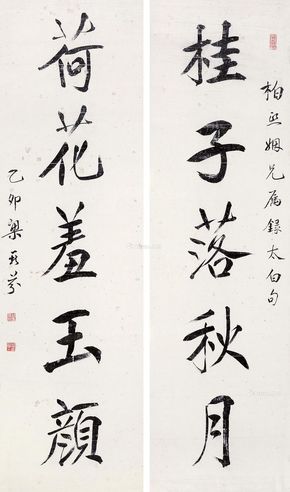 桂子落秋月
柏熙姻兄属錄太白句
荷花羞玉顏
乙卯梁
芬